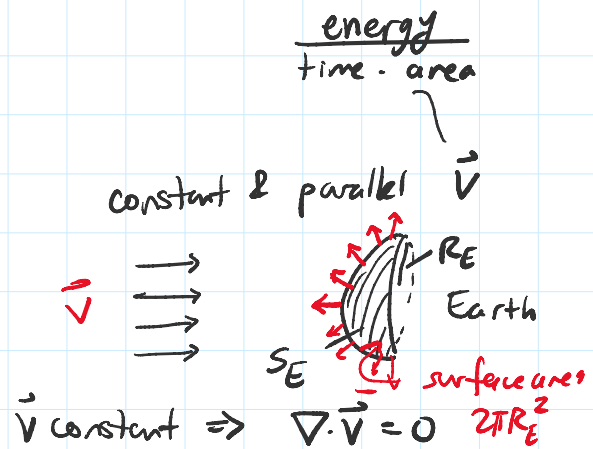 energy
time · area
V⃗
constant & parallel
R_E
V⃗
Earth
S_E
surface area
2πR_E²
V⃗ constant ⇒ ∇·V⃗ = 0